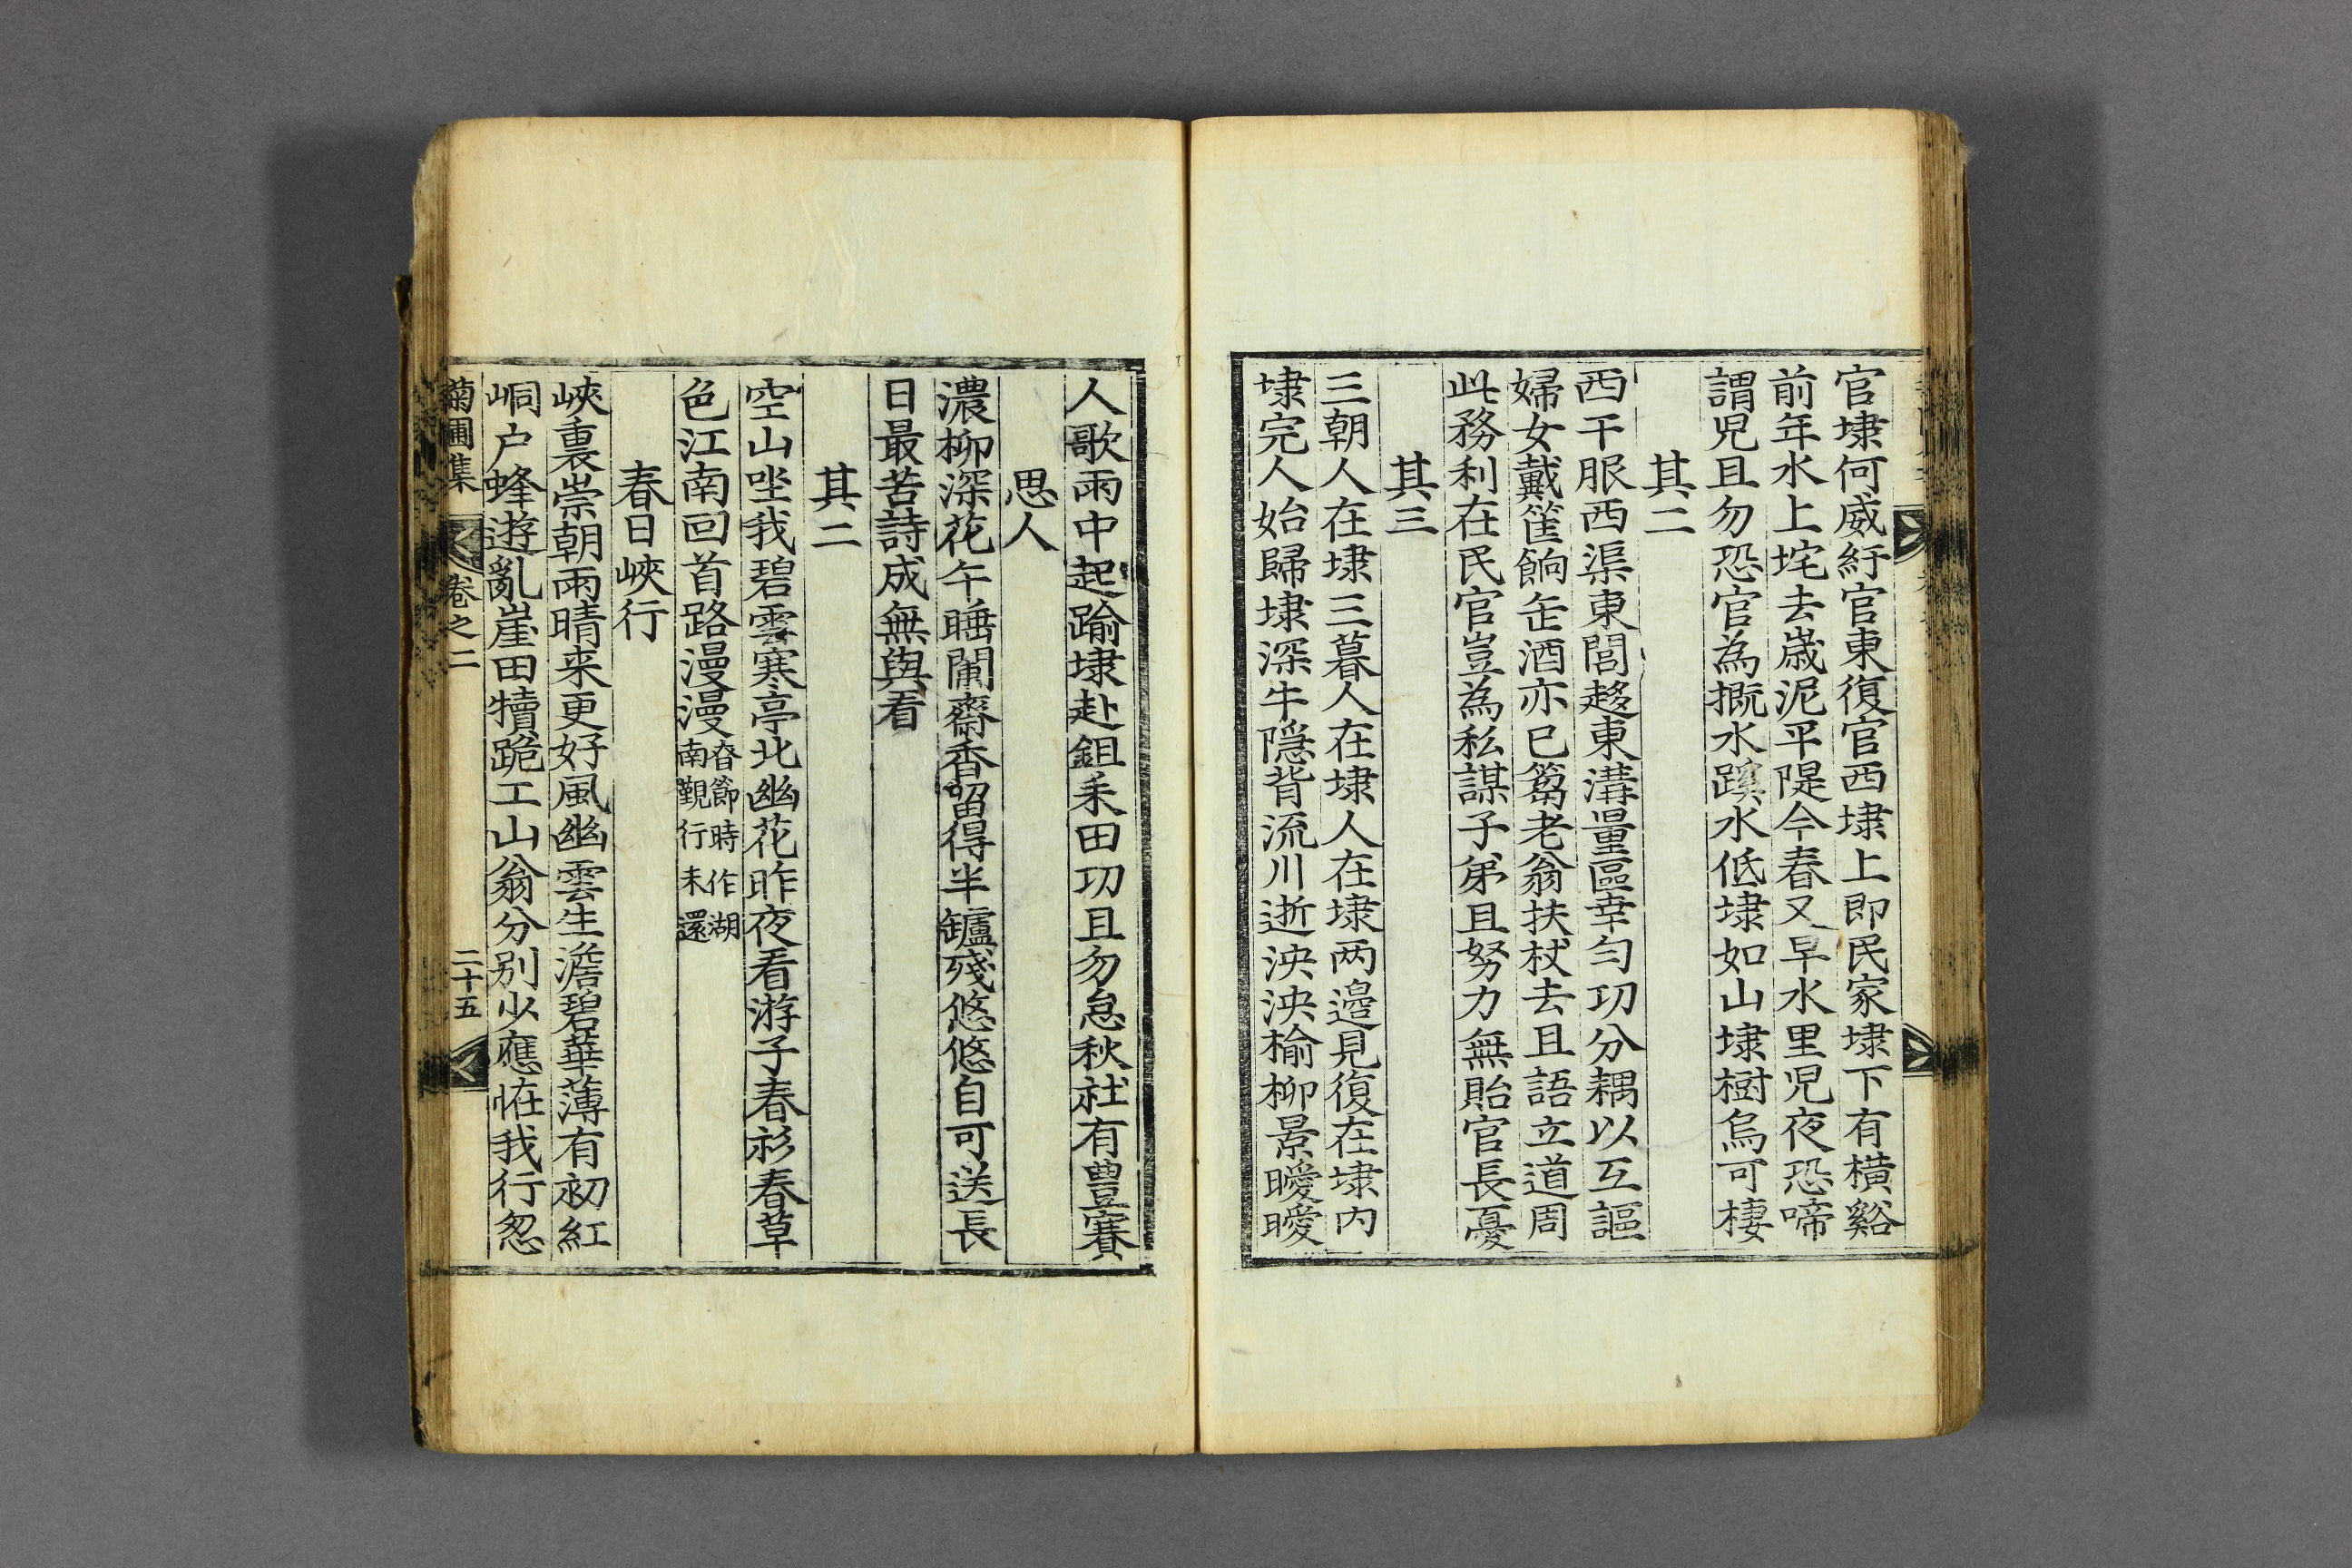 官埭何威紆官東復官西埭上即民家埭下有橫谿
前年水上垞去歲泥平隄今春又旱水里児夜恐啼
謂児且勿恐官為摡水蹊水低埭如山埭樹烏可棲
其二
西干服西渠東閭趍東溝量區幸勻功分耦以互謳
婦女戴筐餉缶酒亦已篘老翁扶杖去且語立道周
此務利在民官豈為私謀子弟且努力無貽官長憂
其三
三朝人在埭三暮人在埭人在埭两邉見復在埭内
埭完人始歸埭深牛隠背流川逝泱泱榆柳景曖曖
人歌雨中起踰埭赴鉏耒田功且勿怠秋社有豊賽
思人
濃柳深花午睡闌齋香留得半罏殘悠悠自可送長
日最苦詩成無與看
其二
空山坐我碧雲寒亭北幽花昨夜看游子春衫春草
色江南回首路漫漫
春節時作湖
南覲行未還
春日峽行
峽裏崇朝雨晴来更好風幽雲生澹碧華薄有初紅
峒户蜂遊亂崖田犢跪工山翁分别少應恠我行怱
菊圃集
卷之二
二十五